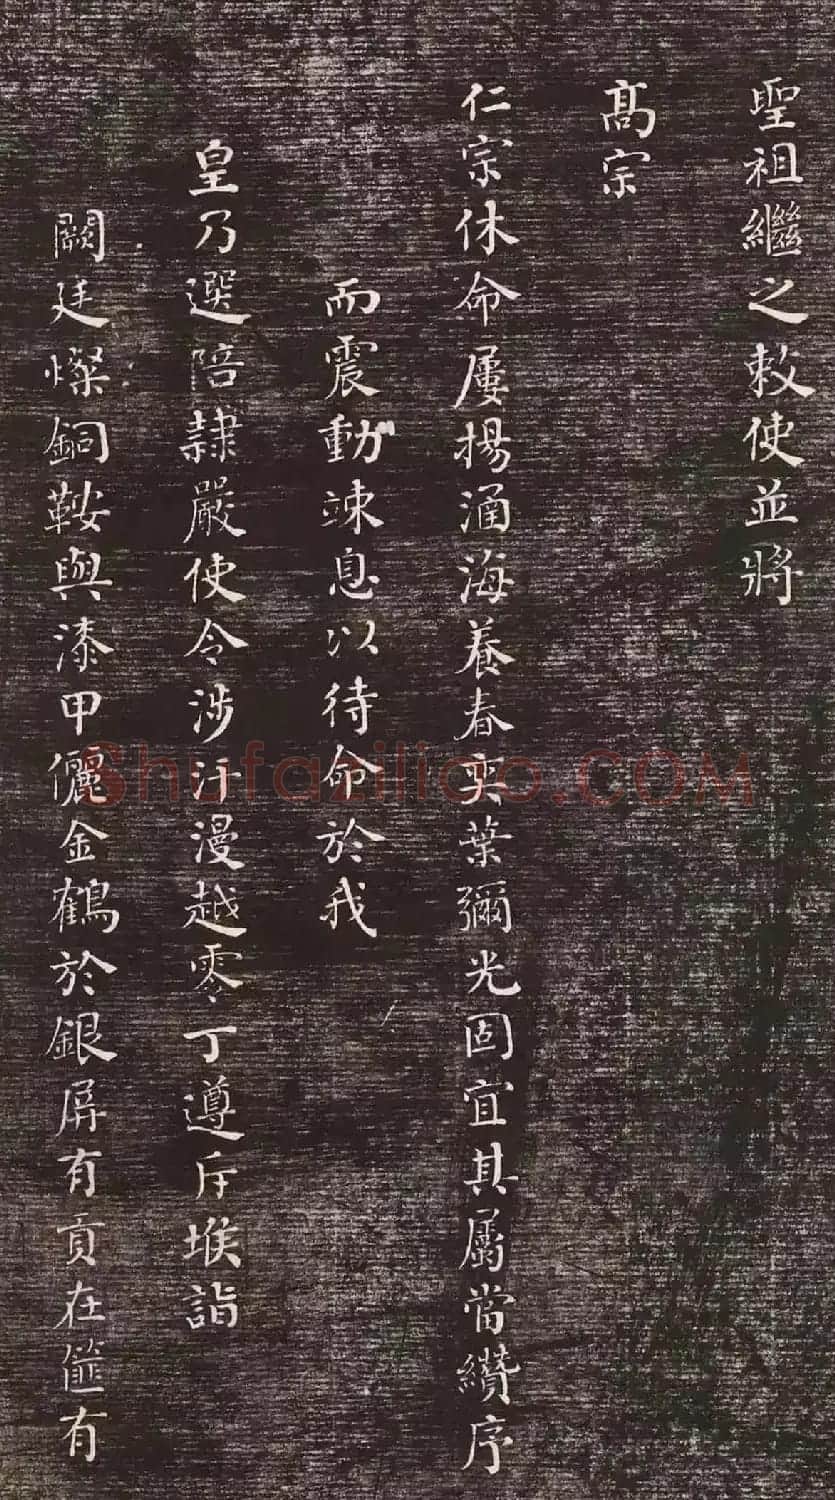 聖祖繼之敕使並將
髙宗
仁宗休命屢揚涵海養春奕葉彌光固宜其屬當纘序
而震動竦息以待命於我
皇乃選陪隷嚴使令涉汗漫越零丁遵斥堠詣
闕廷燦銅鞍與漆甲儷金鶴於銀屏有貢在篚有
Shufaziliao.COM